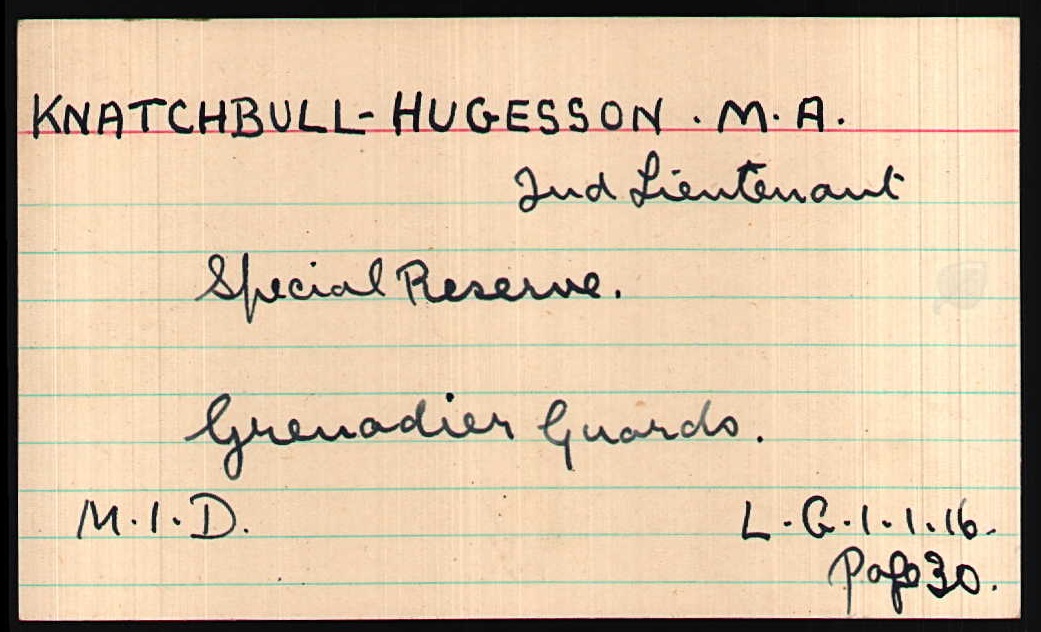 KNATCHBULL-HUGESSON. M.A.
2nd Lieutenant
Special Reserve.
Grenadier Guards.
M.I.D. L.G.1.1.16.
Page 30.